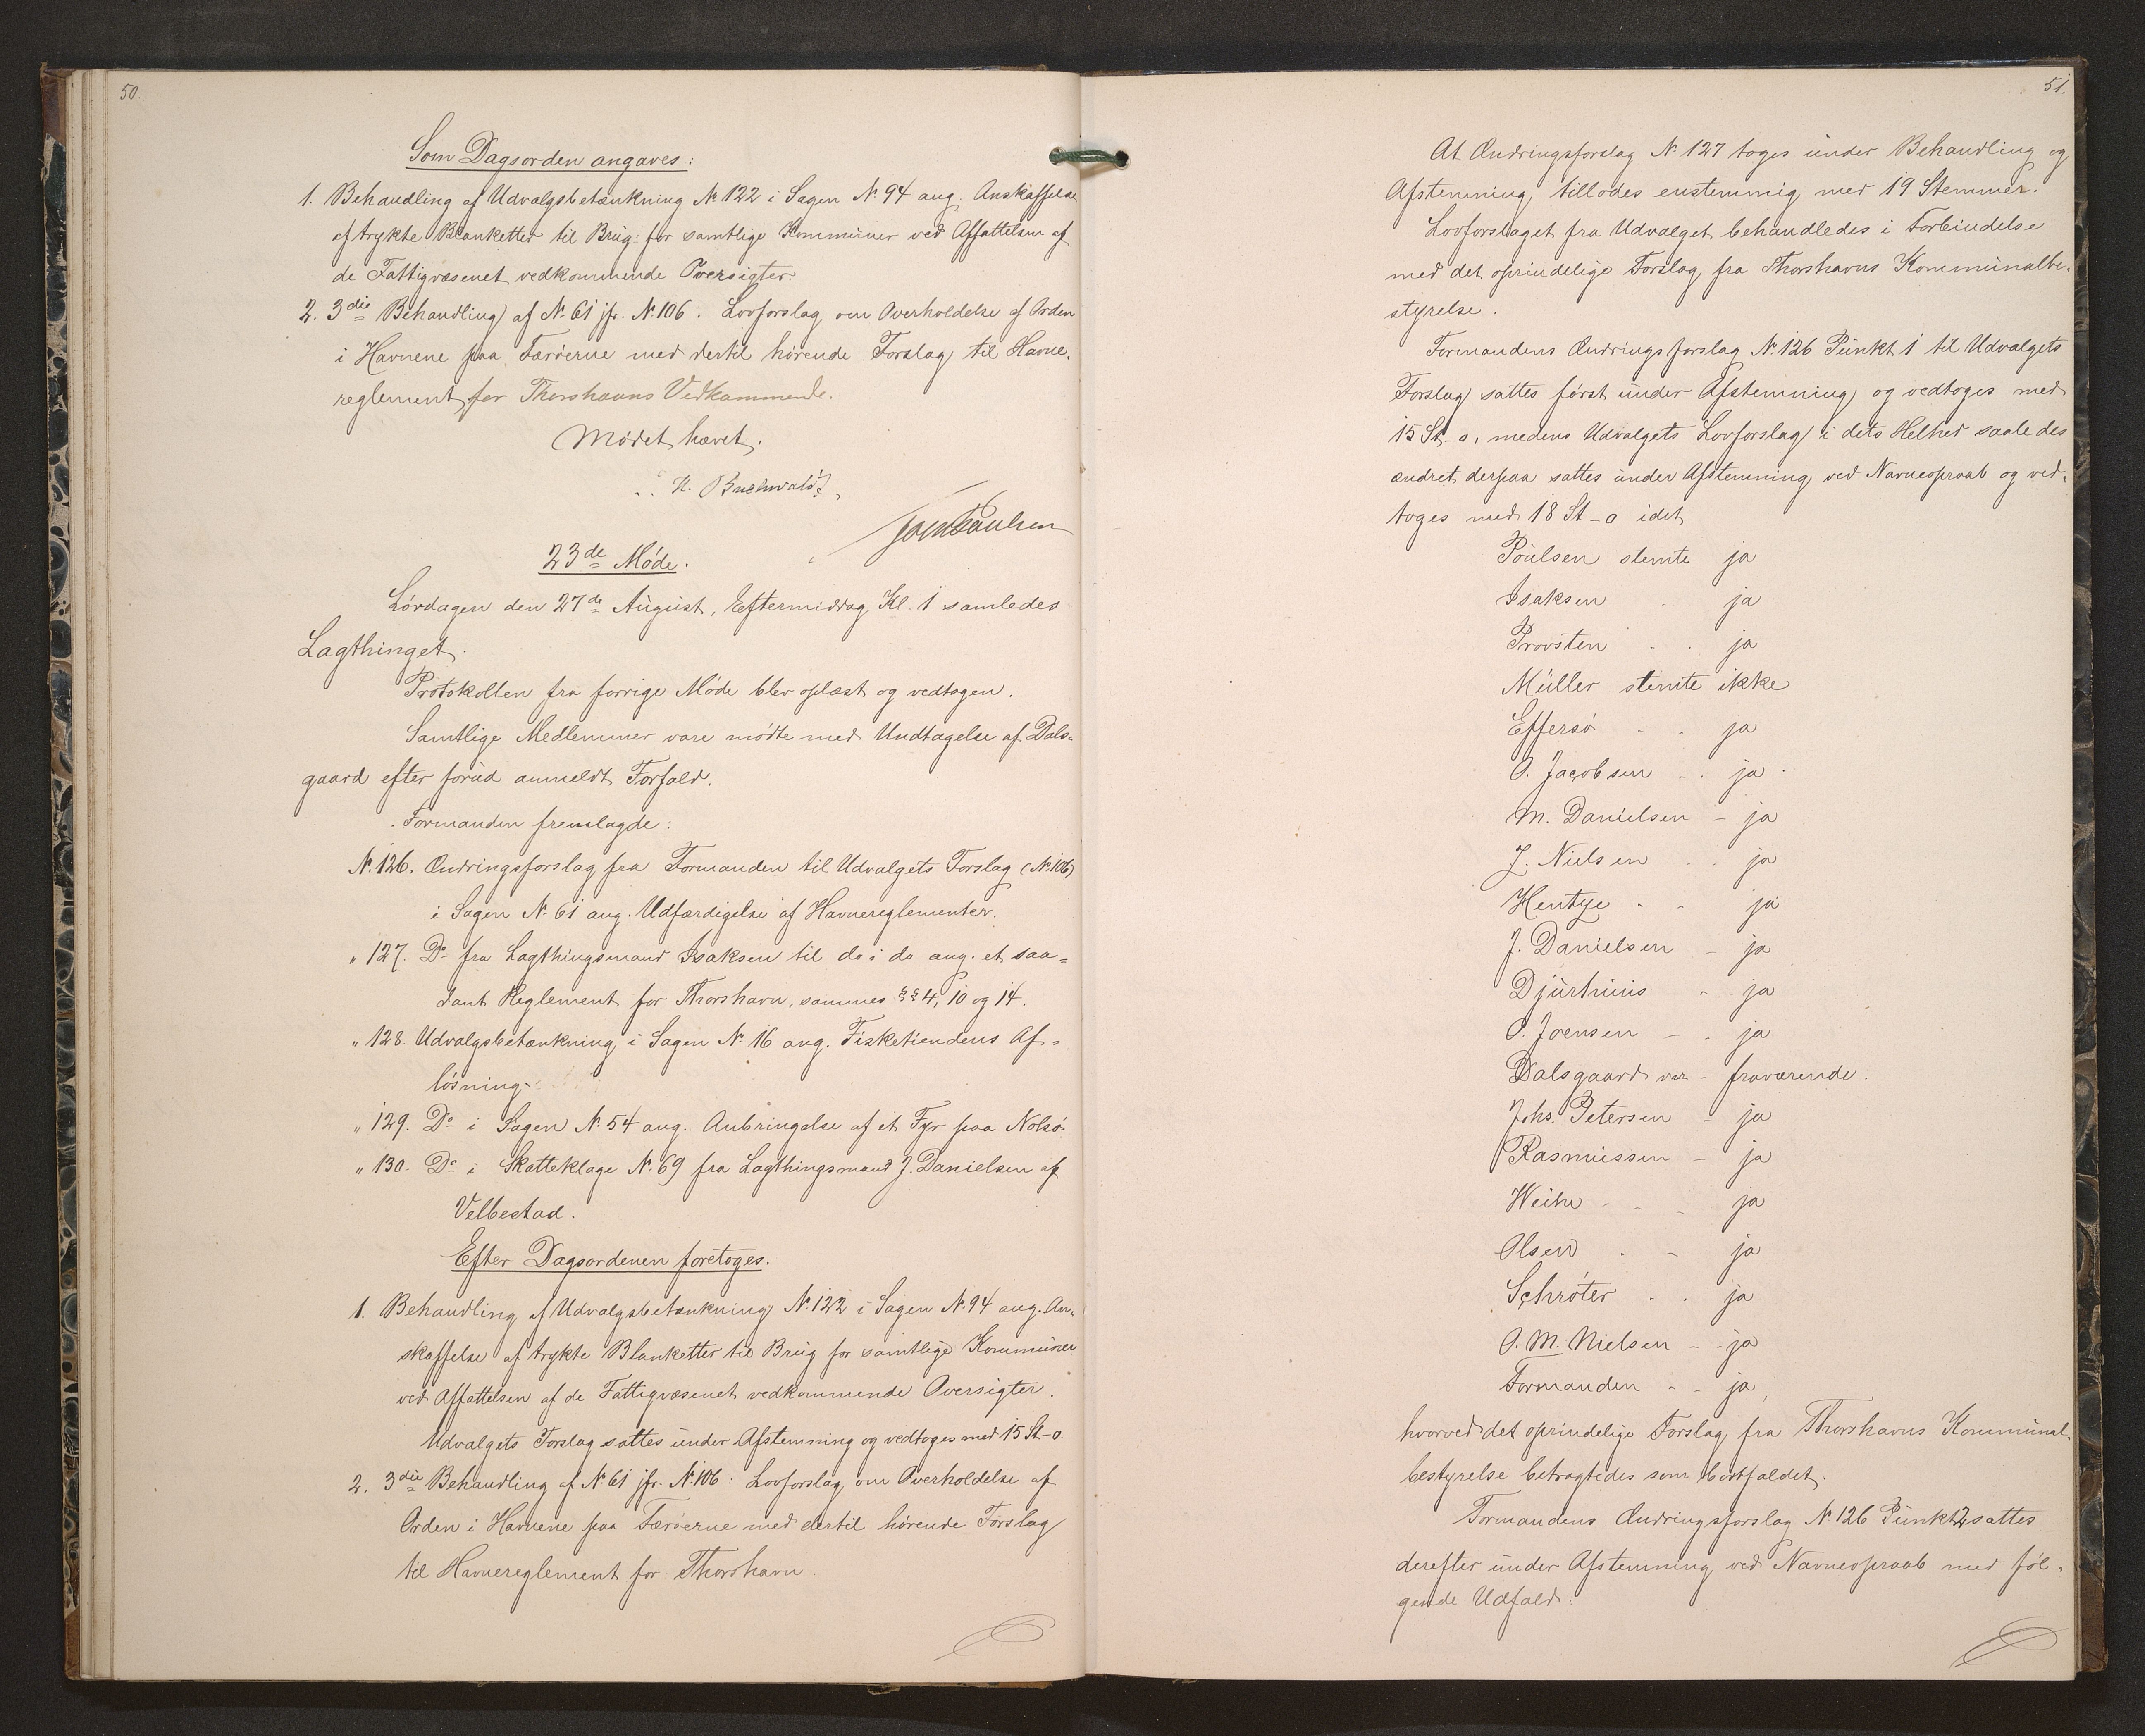 50.
Som Dagsorden angaves:
1. Behandling af Udvalgsbetænkning No 122 i Sagen No 94 ang. Anskaffelse
af trykte Blanketter til Brug for samtlige Kommuner ved Affattelsen af
de Fattigvæsenet vedkommende Oversigter.
2. 3die Behandling af No 61 jfr. No 106. Lovforslag om Overholdelse af Orden
i Havnene paa Færøerne med dertil hørende Forslag til Havne-
reglement for Thorshavns Vedkommende.
Mødet hævet.
H. Buchwald
23de Møde.
Lørdagen den 27de August, Eftermiddag Kl. 1 samledes
Lagthinget.
Protokollen fra forrige Møde blev oplæst og vedtagen.
Samtlige Medlemmer vare mødte med Undtagelse af Dals-
gaard efter forud anmeldt Forfald.
Formanden fremlagde:
No 126. Ændringsforslag fra Formanden til Udvalgets Forslag (No 106)
i Sagen No 61 ang. Udfærdigelse af Havnereglementer.
" 127. Do fra Lagthingsmand Isaksen til do i do ang. et saa-
dant Reglement for Thorshavn, sammes §§ 4, 10 og 14.
" 128. Udvalgsbetænkning i Sagen No 16 ang. Fisketiendens Af-
løsning.
" 129. Do i Sagen No 54 ang. Anbringelse af et Fyr paa Nolsø.
" 130. Do i Skatteklage No 69 fra Lagthingsmand J. Danielsen af
Velbestad.
Efter Dagsordenen foretoges.
1. Behandling af Udvalgsbetænkning No 122 i Sagen No 94 ang. An-
skaffelse af trykte Blanketter til Brug for samtlige Kommuner
ved Affattelsen af de Fattigvæsenet vedkommende Oversigter.
Udvalgets Forslag sattes under Afstemning og vedtoges med 15 St-o
2. 3die Behandling af No 61 jfr. No 106: Lovforslag om Overholdelse af
Orden i Havnene paa Færøerne med dertil hørende Forslag
til Havnereglement for Thorshavn.
51.
At Ændringsforslag No 127 toges under Behandling og
Afstemning, tillodes enstemmig med 19 Stemmer.
Lovforslaget fra Udvalget behandledes i Forbindelse
med det oprindelige Forslag fra Thorshavns Kommunalbe-
styrelse.
Formandens Ændringsforslag No 126 Punkt 1 til Udvalgets
Forslag sattes først under Afstemning og vedtoges med
15 St-o, medens Udvalgets Lovforslag i dets Helhed saaledes
ændret derpaa sattes under Afstemning ved Navneopraab og ved-
toges med 18 St-o idet
Poulsen stemte ja
Isaksen - ja
Provsten - - ja
Müller stemte ikke
Effersø - - ja
O. Jacobsen - - ja
M. Danielsen - ja
J. Nielsen - - ja
Hentze - - ja
J. Danielsen - ja
Djurhuus - ja
O. Joensen - - ja
Dalsgaard var - fraværende.
Johs. Petersen - ja
Rasmussen - ja
Weihe - - - ja
Olsen - - ja
Schrøter - - ja
O. M. Nielsen - - ja
Formanden - - ja,
hvorved det oprindelige Forslag fra Thorshavns Kommunal-
bestyrelse betragtedes som bortfaldet.
Formandens Ændringsforslag No 126 Punkt 2 sattes
derefter under Afstemning ved Navneopraab med føl-
gende Udfald: